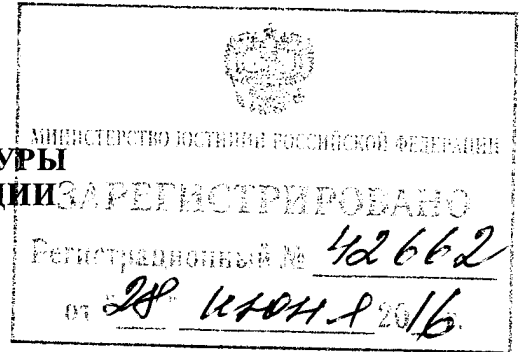 МИНИСТЕРСТВО ЮСТИЦИИ РОССИЙСКОЙ ФЕДЕРАЦИИ
УРЫ
ЦИИ
ЗАРЕГИСТРИРОВАНО
Регистрационный № 42662
от "28" июня 2016 г.